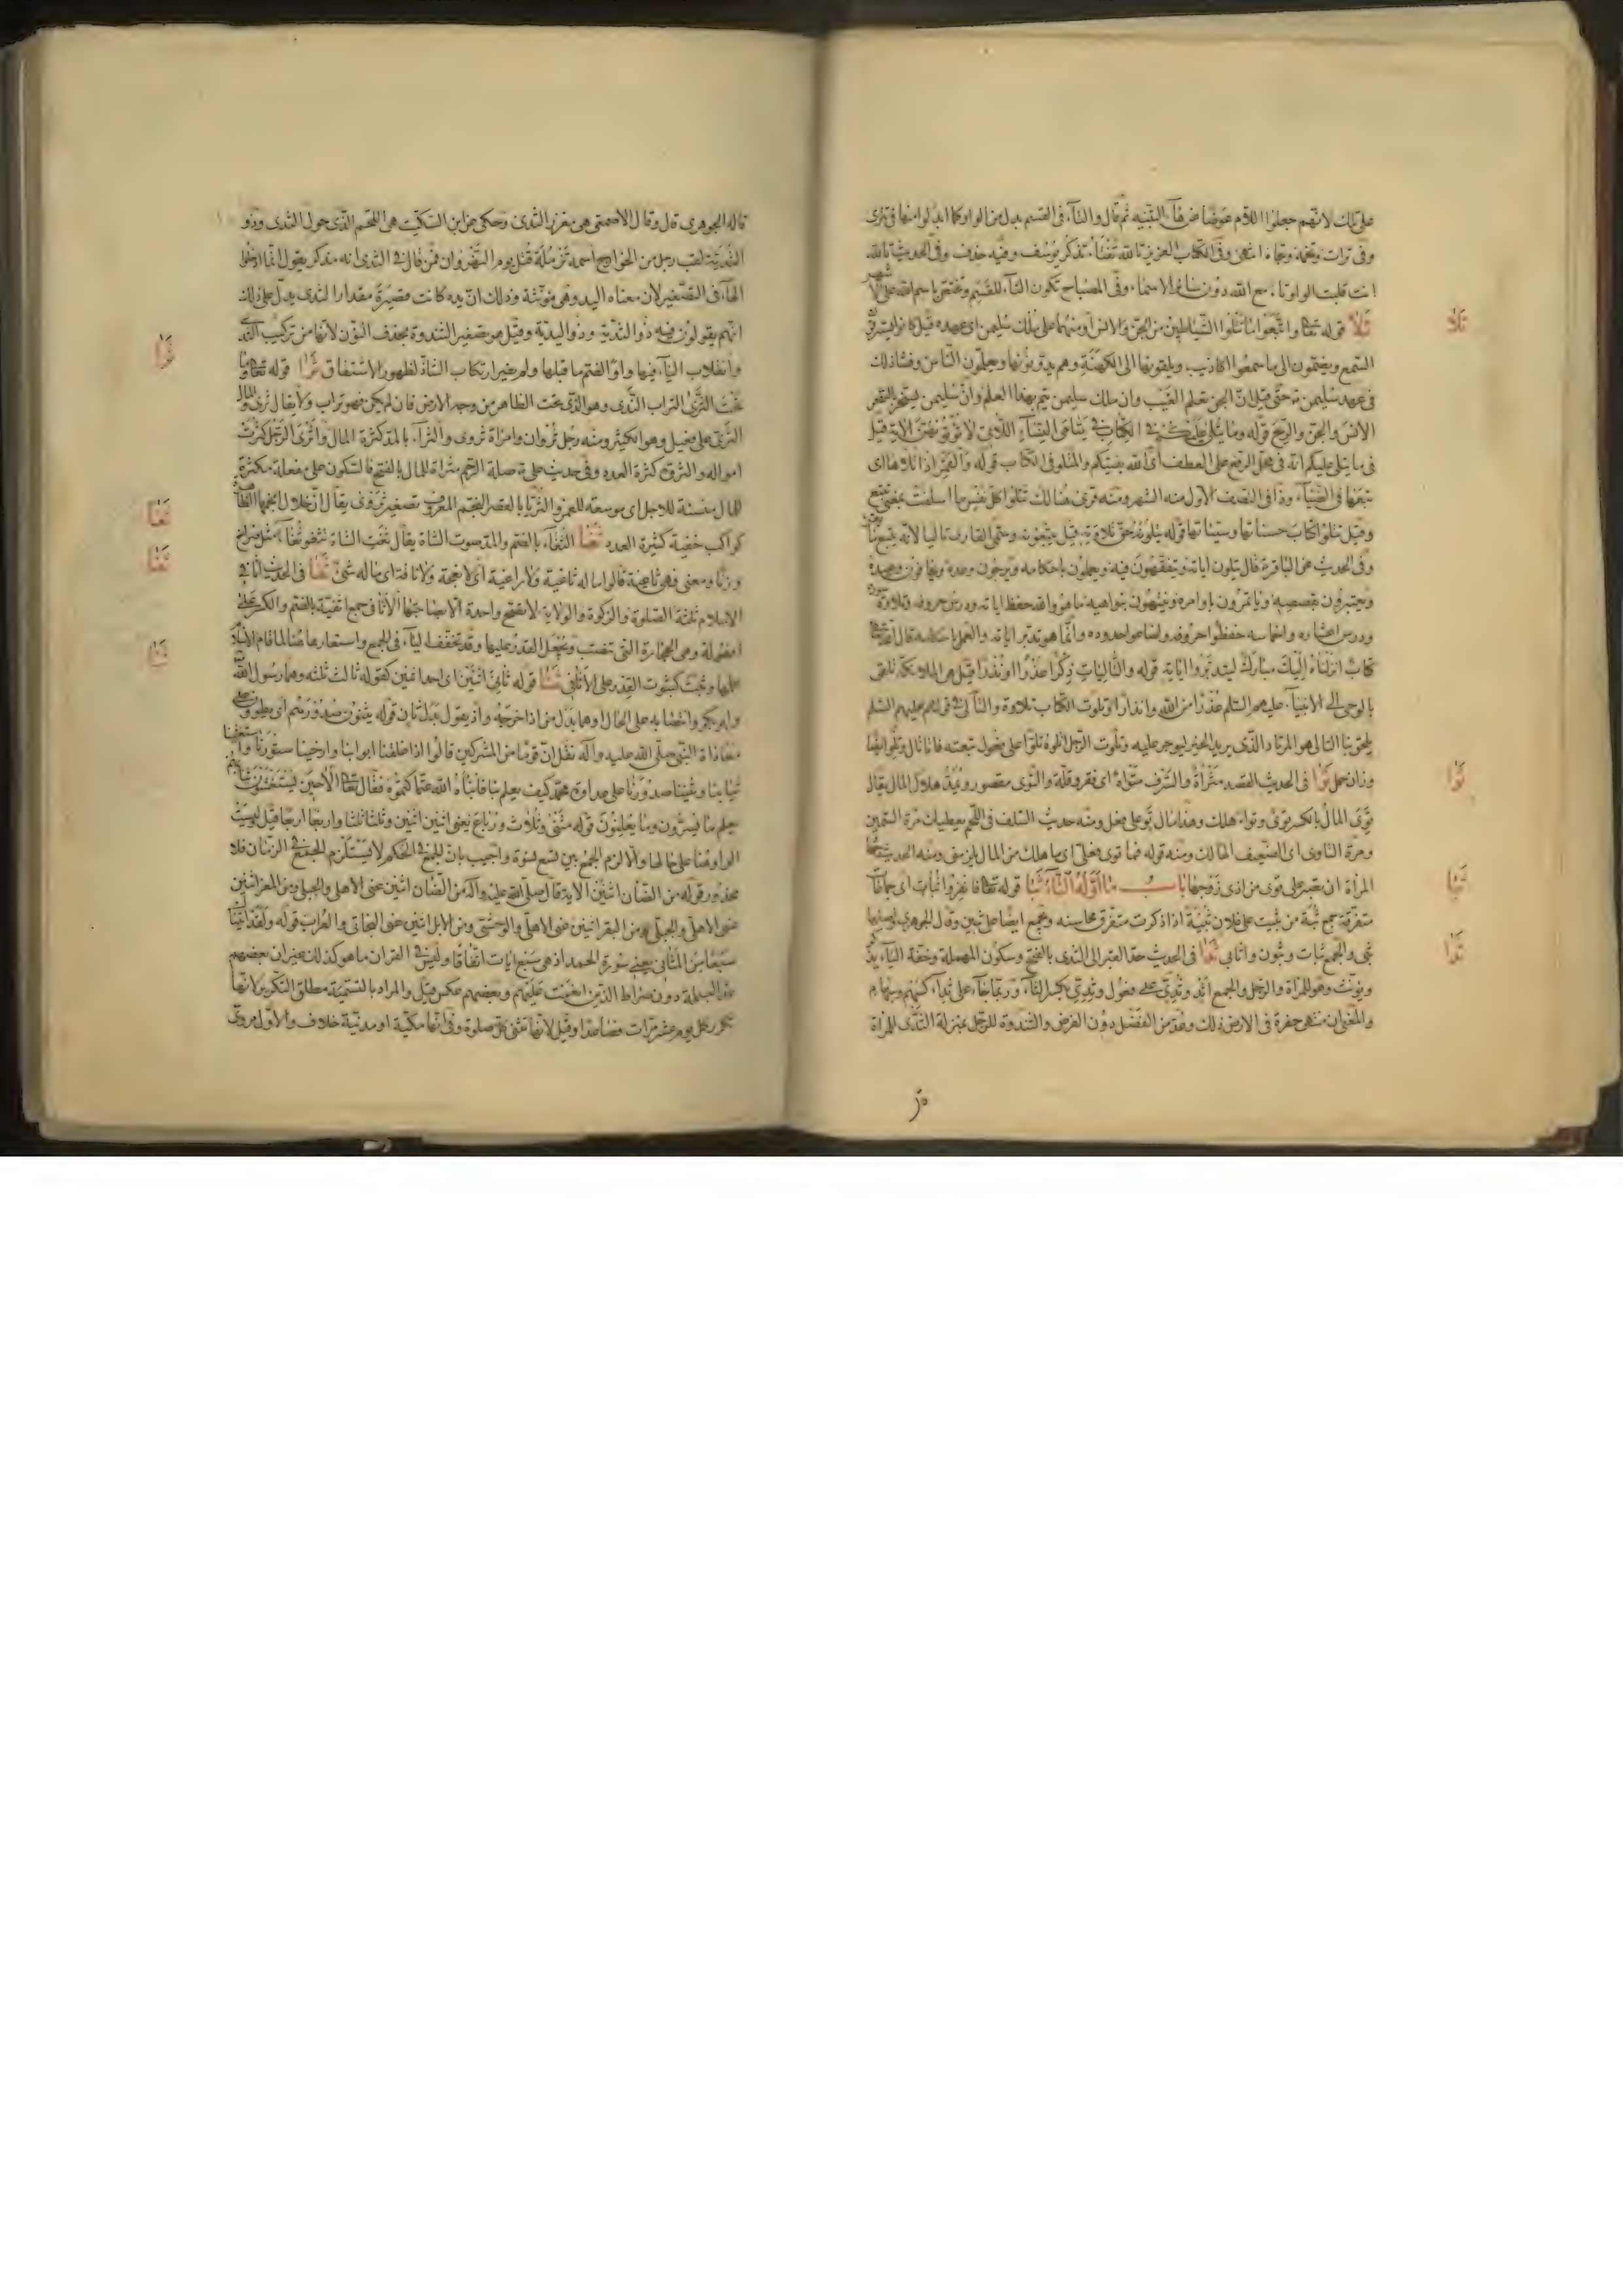 على تلك لانهم جعلوا اللام عوضا ضرفا التنبيه ثم قال والتاء فى القسم بدل من الواو كما ابدلوا منها فى تترى
وفى تراث وتخمة وتجاه انتهى وفى الكتاب العزيز تالله تفتأ تذكر يوسف وفيه حذف وفى الحديث تالله
انت قلبت الواو تاء مع الله دون سائر الاسماء وفى المصباح تكون التاء للقسم وتختص باسم الله على الاشهر
تلا قوله تعالى واتبعوا ما تتلوا الشياطين من الجن والانس او منهما على ملك سليمن اى عهده قيل كانوا يسترقون
السمع ويضمون الى ما سمعوا اكاذيب ويلقونها الى الكهنة وهم يدونونها ويعلمون الناس وفشا ذلك
فى عهد سليمن حتى قيل ان الجن تعلم الغيب وان ملك سليمن يتم بهذا العلم وان سليمن يسخر به
الانس والجن والريح قوله وما يتلى عليكم فى الكتاب فى يتامى النساء اللاتى لا تؤتونهن الاية قيل
فى ما يتلى عليكم انه فى محل الرفع على العطف اى الله يفتيكم والمتلو فى الكتاب قوله والقمر اذا تلاها اى
تبعها فى الضياء وذا فى النصف الاول من الشهر ومنه قرئ هنالك تتلوا كل نفس ما اسلفت بمعنى تتبع
وقيل تتلوا كتاب حسناتها وسيئاتها قوله يتلونه حق تلاوته قيل يتبعونه وسمى القارى تاليا لانه يتبع ما يقرأ
وفى الحديث عن الباقر قال يتلون اياته ويتفقهون فيه ويعملون باحكامه ويرجون وعده ويخافون وعيده
ويعتبرون بقصصه وياتمرون باوامره وينتهون بنواهيه ما هو والله حفظ اياته ودرس حروفه وتلاوة سوره
ودرس اعشاره واخماسه حفظوا حروفه واضاعوا حدوده وانما هو تدبر اياته والعمل باحكامه قال تعالى
كتاب انزلناه اليك مبارك ليدبروا اياته قوله والتاليات ذكرا عذرا او نذرا قيل هى الملائكة تلقى
بالوحى الى الانبياء عليهم السلم عذرا من الله وانذارا وتلوت الكتاب تلاوة والتالى فى قولهم عليهم السلم
يلحق بنا التالى هو المرتاد الذى يريد الخير ليوجر عليه وتلوت الرجل اتلوه تلوا على فعول تبعته فانا تال وتلو ايضا
وزان حمل توا فى الحديث القصد مثراة والشرف متواة اى فقر وقلة والتوى مقصور ويمد هلاك المال يقال
توى المال بالكسر توى وتواء هلك وهذا مال تو على فعل ومنه حديث السلف فى اللحم يعطيك مرة السمين
ومرة التاوى اى الضعيف الهالك ومنه قوله فما توى فعلى اى ما هلك من المال يلزمنى ومنه الحديث
المراة ان تصبر على توى من اذى زوجها باب ما اوله الثاء ثبا قوله تعالى فانفروا ثبات اى جماعات
متفرقة جمع ثبة من ثبيت على فلان تثبية اذا ذكرت متفرق محاسنه وتجمع ايضا على ثبين وقال الجوهرى واصلها
ثبى والجمع ثبات وثبون واثابى ثدا فى الحديث حد القبر الى الثدى بالفتح وسكون المهملة وخفة الياء يذكر
ويونث وهو للمراة والرجل والجمع اثد وثدى على فعول وثدى بكسر الثاء وربما جاء على ثداء كسهم وسهام
والمغنى ان منتهى حفرة فى الارض ذلك وهذا من الفضل دون الفرض والثندوة للرجل بمنزلة الثدى للمراة
تلا
توا
ثبا
ثدا
قاله الجوهرى قال وقال الاصمعى هى مغرز الثدى وحكى عن ابن السكيت هى اللحم الذى حول الثدى وذو
الثدية لقب رجل من الخوارج اسمه ثرملة قتل يوم النهروان فمن قال فى الثدى انه مذكر يقول انما ادخلوا
الهاء فى التصغير لان معناه اليد وهى مونثة وذلك ان يده كانت قصيرة مقدار الثدى يدل على ذلك
انهم يقولون فيه ذو الثدية وذو اليدية وقيل هو تصغير الثندوة بحذف النون لانها من تركيب الثدى
وانقلاب الياء فيها واوا لضم ما قبلها ولم يضر ارتكاب الشاذ لظهور الاشتقاق ثرا قوله تعالى وما
تحت الثرى الثرى التراب الندى وهو الذى تحت الظاهر من وجه الارض فان لم يكن فهو تراب ولا يقال ثرى والمال
الثرى على فعيل وهو الكثير ومنه رجل ثروان وامراة ثروى والثراء بالمد كثرة المال واثرى الرجل كثرت
امواله والثروة كثرة العدد وفى حديث على صلة الرحم مثراة للمال بالفتح فالسكون على مفعلة مكثرة
للمال منسئة للاجل اى موسعة للعمر والثريا بالقصر النجم المعروف تصغير ثروى يقال ان خلال انجمها الظاهرة
كواكب خفية كثيرة العدد ثغا الثغاء بالضم والمد صوت الشاة يقال ثغت الشاة تثغو ثغاء مثل صراخ
وزنا ومعنى فهى ثاغية قالوا ما له ثاغية ولا راغية اى لا نعجة ولا ناقة اى ما له شئ ثفا فى الحديث اثافى
الاسلام ثلثة الصلوة والزكوة والولاية لا تصح واحدة الا بصاحبتها الاثافى جمع اثفية بالضم والكسر على
افعولة وهى الحجارة التى تنصب وتجعل القدر عليها وقد تخفف الياء فى الجمع واستعارها هنا لما قام الاسلام
عليها وثبت كثبوت القدر على الاثافى ثنا قوله ثانى اثنين اى احد اثنين كقوله ثالث ثلثة وهما رسول الله
وابو بكر وانتصابه على الحال وهما بدل من اذ اخرجه واذ يقول بدل ثان قوله يثنون صدورهم اى يطوون على
معاداة النبى صلى الله عليه واله نقل ان قوما من المشركين قالوا اذا غلقنا ابوابنا وارخينا ستورنا واستغشينا
ثيابنا وثنينا صدورنا على عداوة محمد كيف يعلم بنا فانباه الله عما كتموه فقال تعالى الا حين يستغشون ثيابهم
يعلم ما يسرون وما يعلنون قوله مثنى وثلاث ورباع يعنى اثنين اثنين وثلثا ثلثا واربعا اربعا قيل ليست
الواو هنا على حالها والا لزم الجمع بين تسع نسوة واجيب بان الجمع فى الحكم لا يستلزم الجمع فى الزمان فلا
محذور قوله من الضان اثنين الاية قال صلى الله عليه واله من الضان اثنين عنى الاهلى والجبلى ومن المعز اثنين
عنى الاهلى والجبلى ومن البقر اثنين عنى الاهلى والوحشى ومن الابل اثنين عنى البخاتى والعراب قوله ولقد اتيناك
سبعا من المثانى يعنى سورة الحمد اذ هى سبع ايات اتفاقا وليس فى القران ما هو كذلك غير ان بعضهم
عد البسملة دون صراط الذين انعمت عليهم وبعضهم عكس قيل والمراد بالتسمية مطلق التكرير لانها
تكرر كل يوم عشر مرات فصاعدا وقيل لانها تثنى كل صلوة وفى انها مكية او مدنية خلاف والاول مروى
ثرا
ثغا
ثفا
ثنا